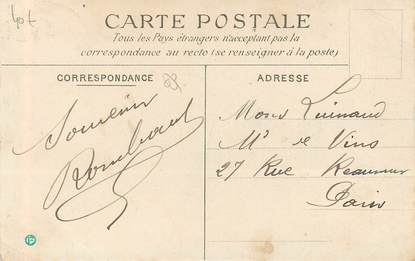 CARTE POSTALE
Tous les Pays étrangers n'acceptant pas la
correspondance au recto (se renseigner à la poste)
CORRESPONDANCE
ADRESSE
Souvenir
Mons
Md de Vins
27 Rue Reaumur
Paris